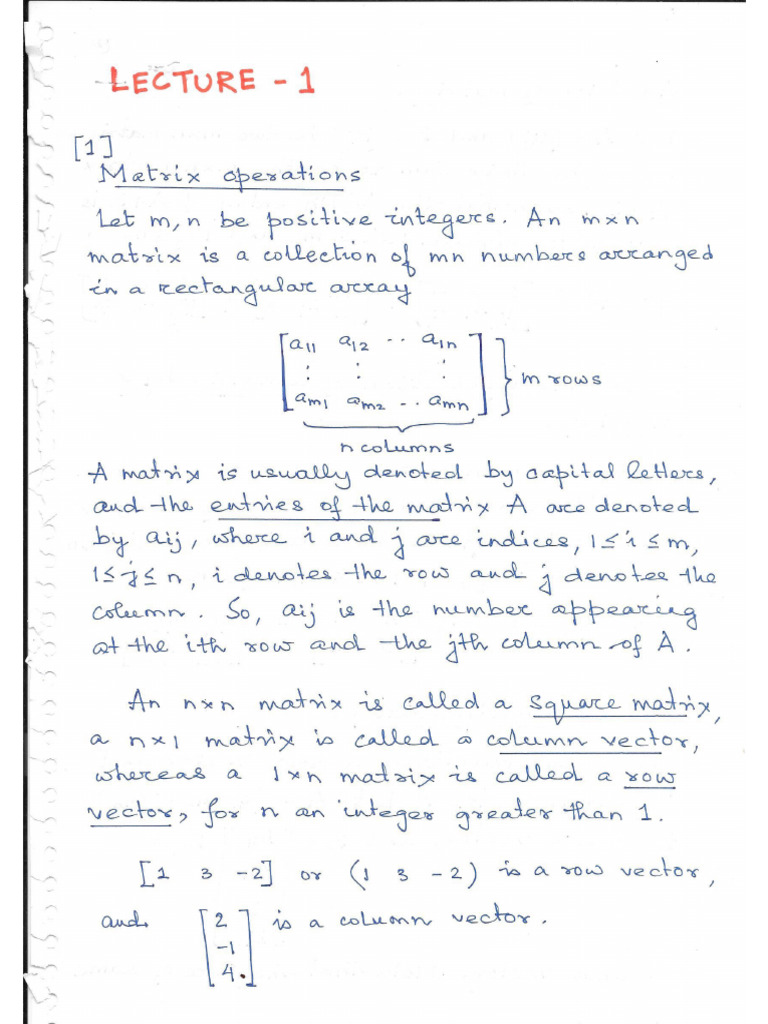 LECTURE - 1
[1]
Matrix operations
Let m, n be positive integers. An m×n
matrix is a collection of mn numbers arranged
in a rectangular array
[a11 a12 ·· a1n]
[⋮ ⋮ ⋮] } m rows
[am1 am2 ·· amn]
n columns
A matrix is usually denoted by capital letters,
and the entries of the matrix A are denoted
by aij, where i and j are indices, 1≤i≤m,
1≤j≤n, i denotes the row and j denotes the
column. So, aij is the number appearing
at the ith row and the jth column of A.
An n×n matrix is called a square matrix,
a n×1 matrix is called a column vector,
whereas a 1×n matrix is called a row
vector, for n an integer greater than 1.
[1 3 -2] or (1 3 -2) is a row vector,
and [2 is a column vector.
-1
4.]